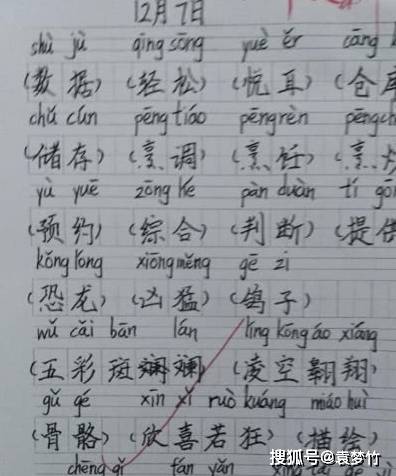 12月7日
shù jù qīng sōng yuè ěr cāng
(数据) (轻松) (悦耳) (仓库
chǔ cún pēng tiáo pēng rèn pēng ch
(储存) (烹调) (烹饪) (烹
yù yuē zōng hé pàn duàn tí gō
(预约) (综合) (判断) (提供
kǒng lóng xiōng měng gē zi
(恐龙) (凶猛) (鸽子)
wǔ cǎi bān lán líng kōng áo xiáng
(五彩斑斓斓) (凌空翱翔)
gǔ gé xīn xǐ ruò kuáng miáo huì
(骨骼) (欣喜若狂) (描绘)
chēng fán yǎn
搜狐号@袁梦竹